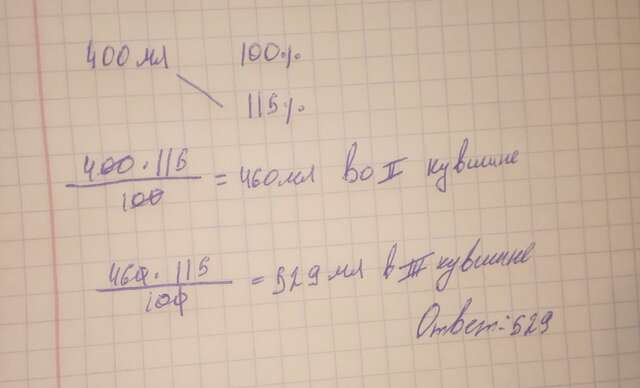 400 мл 100%
115%
400 · 115
100
= 460 мл во II кувшине
460 · 115
100
= 529 мл в III кувшине
Ответ: 529